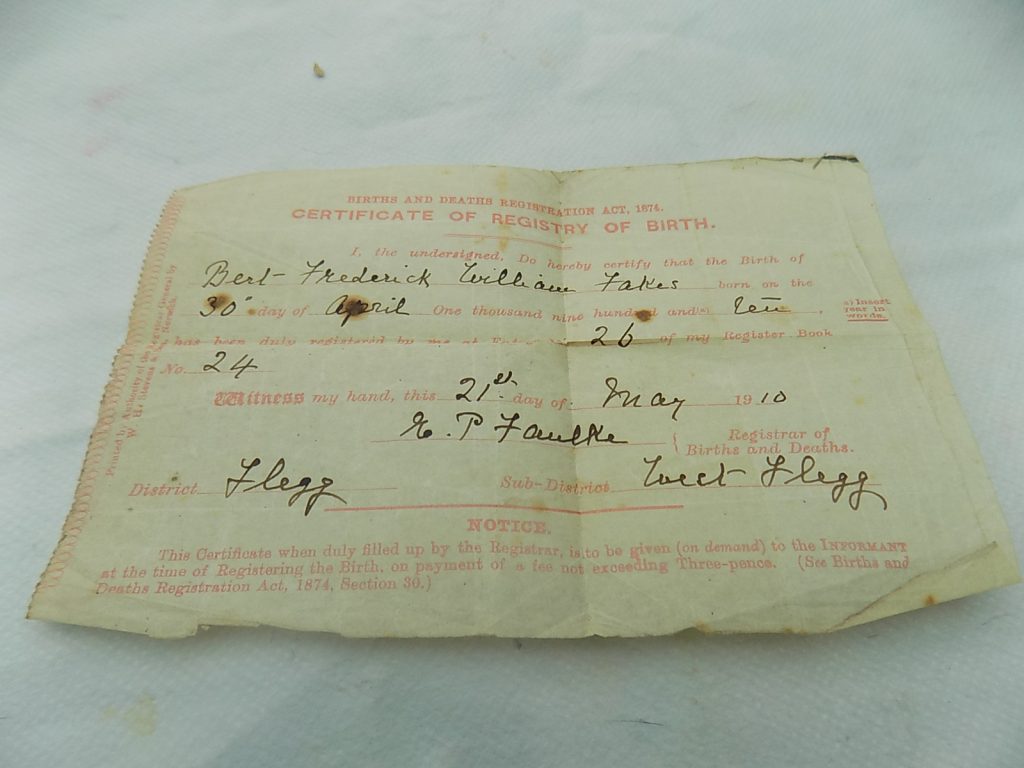 BIRTHS AND DEATHS REGISTRATION ACT, 1874.
CERTIFICATE OF REGISTRY OF BIRTH.
I, the undersigned, Do hereby certify that the Birth of
Bert Frederick William Fakes born on the
30th day of April One thousand nine hundred and (a) Ten,
a) Insert year in words.
has been duly registered by me at Entry No. 26 of my Register Book
No. 24
Witness my hand, this 21st day of May 1910
E. P Faulke { Registrar of
Births and Deaths.
District Flegg Sub-District West Flegg
NOTICE.
This Certificate when duly filled up by the Registrar, is to be given (on demand) to the INFORMANT
at the time of Registering the Birth, on payment of a fee not exceeding Three-pence. (See Births and
Deaths Registration Act, 1874, Section 30.)
Printed by Authority of the Registrar General by
W. H. Stevens &